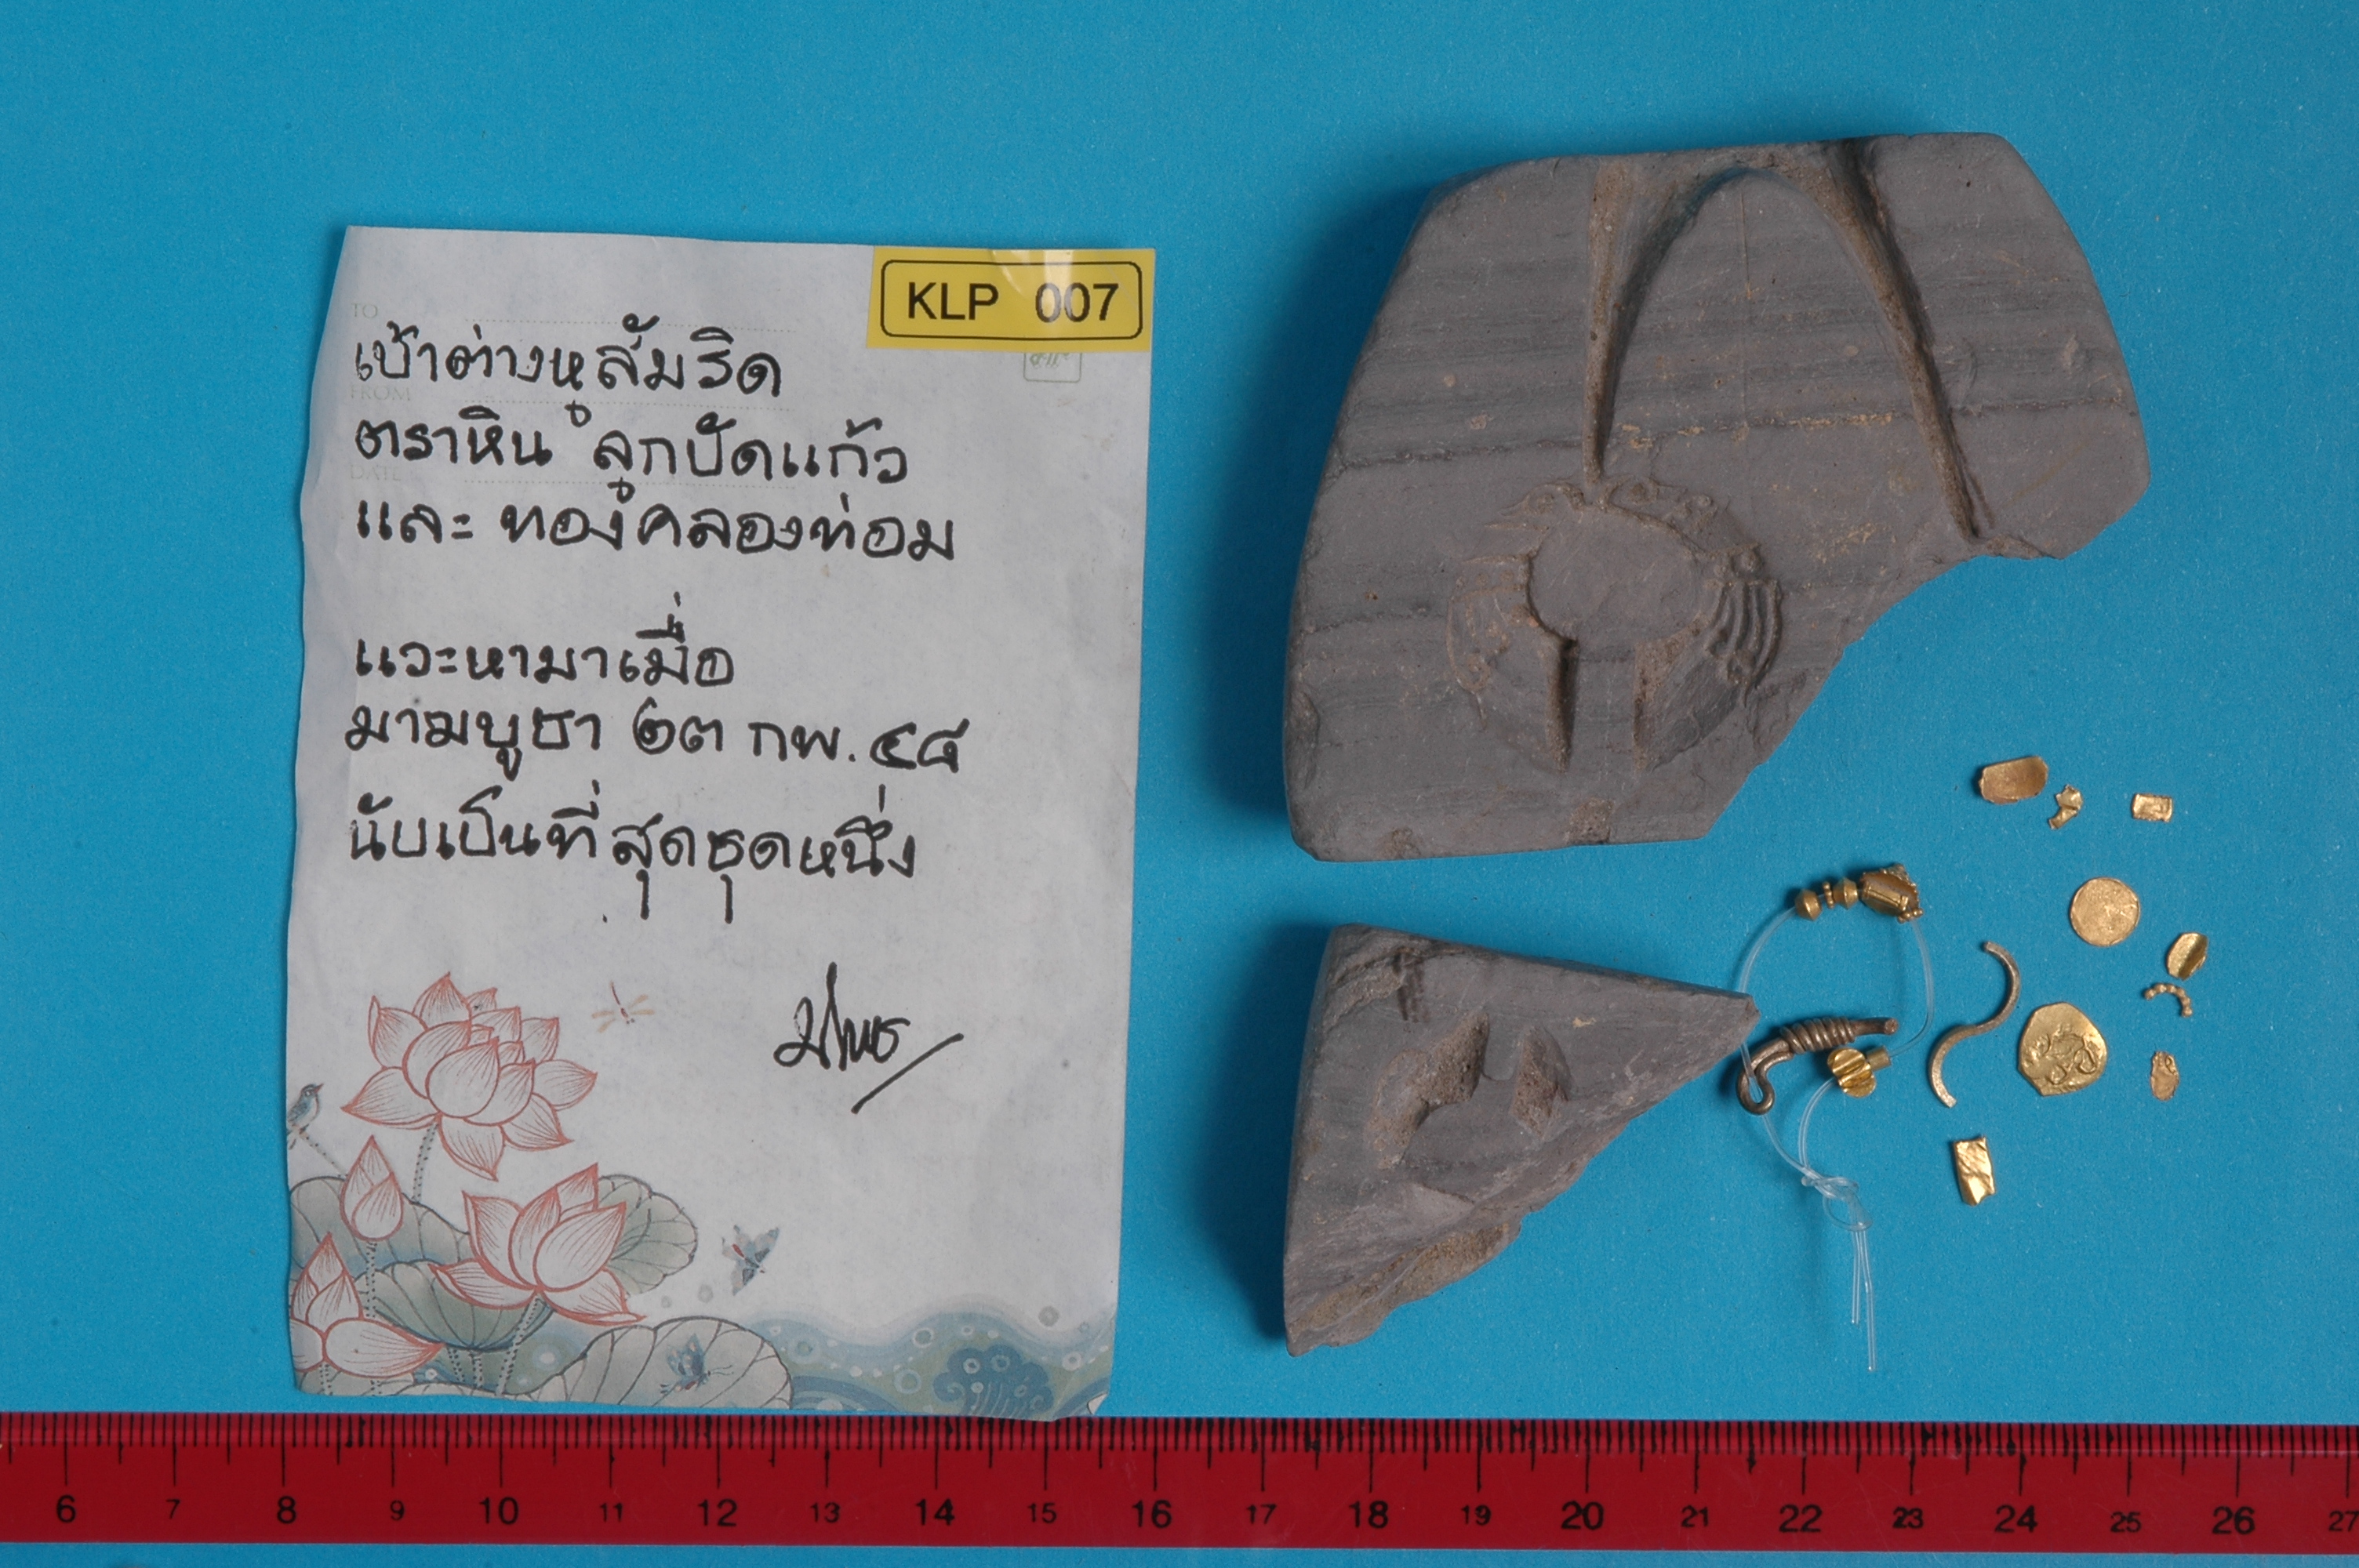 KLP 007
TO
เบ้าต่างหูสัมริด
FROM
ตราหิน ลูกปัดแก้ว
DATE
และ ทองคลองท่อม
แวะหามาเมื่อ
มาฆบูชา ๒๓ กพ. ๔๘
นับเป็นที่สุดชุดหนึ่ง
6 7 8 9 10 11 12 13 14 15 16 17 18 19 20 21 22 23 24 25 26 27